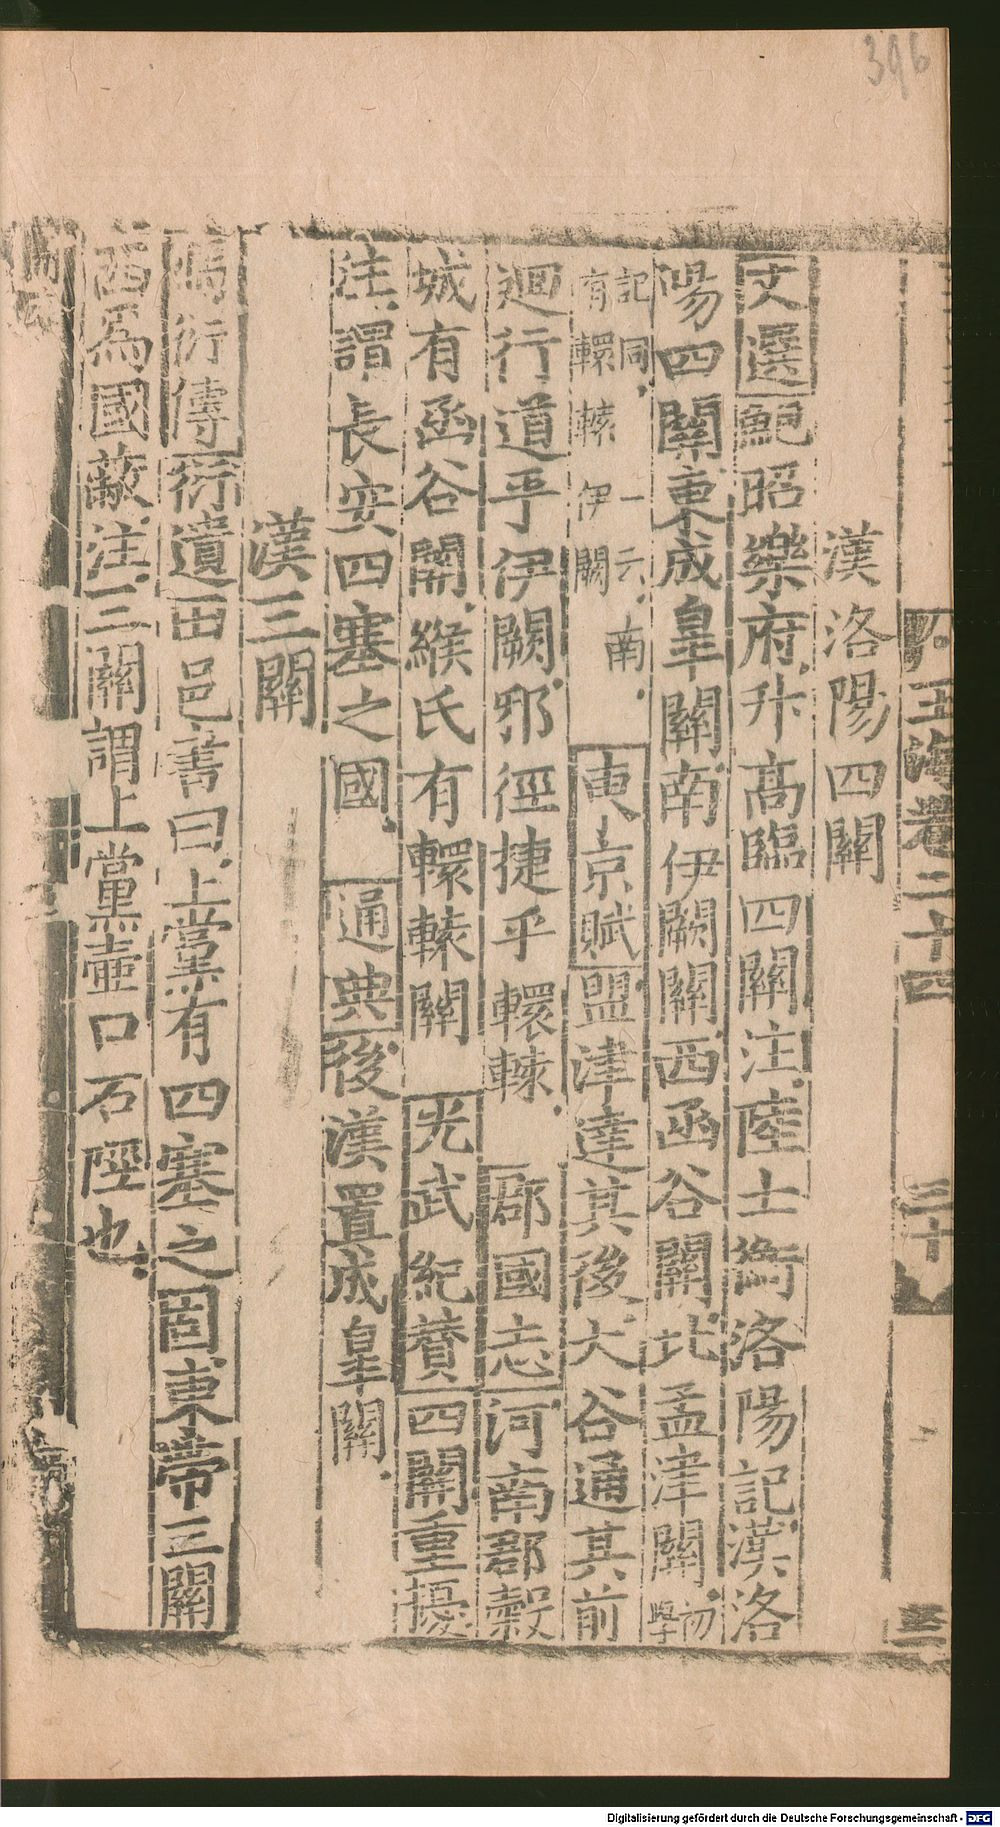 396
玉海卷二十四
三十
漢洛陽四關
文選鮑昭樂府升高臨四關注陸士衡洛陽記漢洛
陽四關東成皐關南伊闕關西函谷關北孟津關初學
記同一云南有轘轅伊闕東京賦盟津達其後大谷通其前
迴行道乎伊闕邪徑捷乎轘轅郡國志河南郡穀
城有函谷關緱氏有轘轅關光武紀贊四關重擾
注謂長安四塞之國通典後漢置成皐關
漢三關
馮衍傳衍遺田邑書曰上黨有四塞之固東帶三關
西爲國蔽注三關謂上黨壺口石陘也
Digitalisierung gefördert durch die Deutsche Forschungsgemeinschaft - DFG